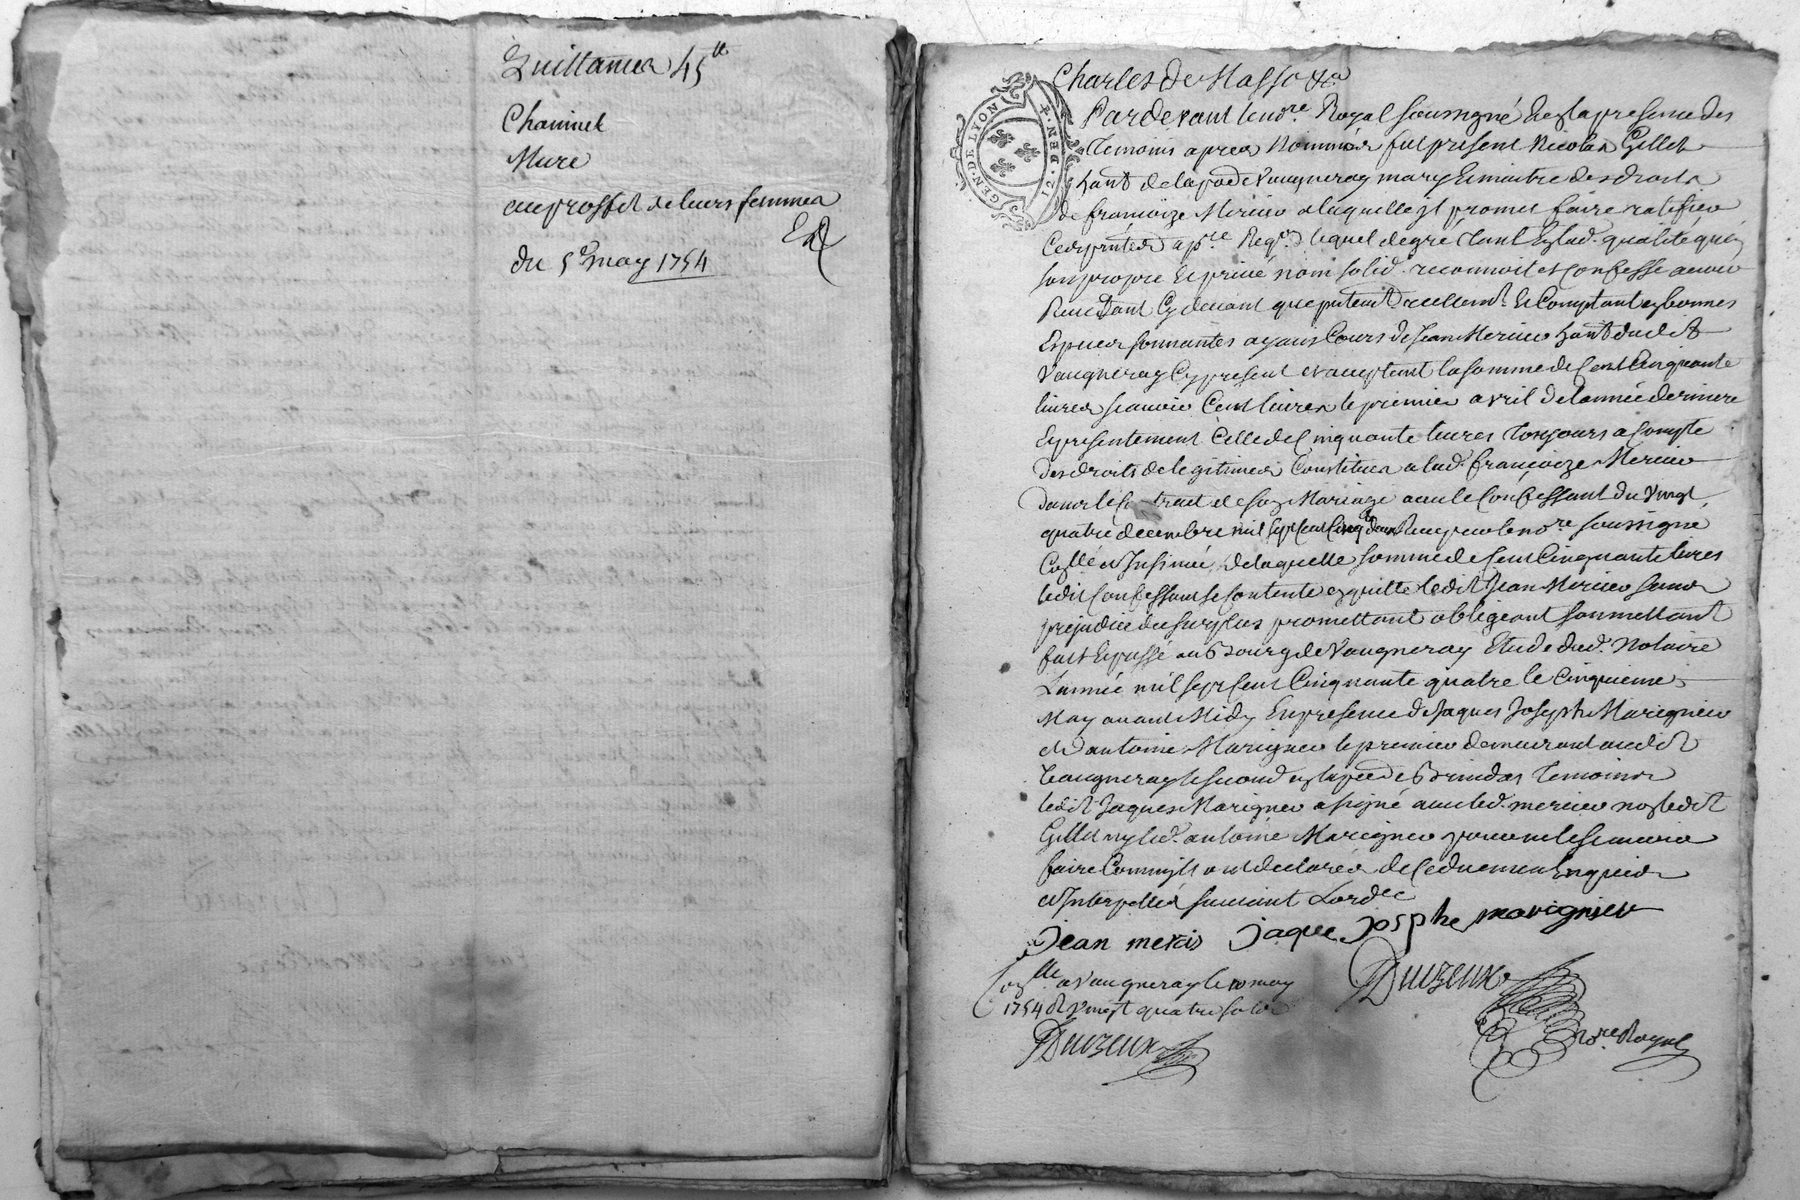 Quittances 45ᵗᵗ
Chaninel
Mure
au proffit de leurs femmes
Ed
du 5ᵉ may 1754
GEN · DE LYON
12 · DEN · 4
Charles de Masso &ca
Pardevant le no.re Royal soussigné & en la presence des
Temoins apres Nommés fut present Nicolas Gillet
habt de la p.sse de Vaugneray mary & maitre des droits
de françoize Mercier a laquelle il promet faire ratifier
ces p.ntes a p.re Req.on lequel de gré tant en lad. qualité qu'en
son propre & privé nom solid. reconnoit et confesse avoir
Receu tant cydevant que p.ntement reellem.t & Comptant en bonnes
Especes sonnantes ayans Cours de Jean Mercier habt dudit
Vaugneray Cy present et acceptant la somme de Cent Cinquante
livres scavoir Cent livres le premier avril de l'année derniere
& presentement Celle de Cinquante livres toujours a Compte
des droits de legitimes Constitués a lad. françoize Mercier
dans le Contract de son Mariage avec le Confessant du Vingt
quatre decembre mil sept cent cinq.te deux Receu par le no.re soussigné
Conllé et Insinué, de laquelle somme de Cent Cinquante livres
ledit Confessant se contente en quitte ledit Jean Mercier sans
prejudice du surplus promettant obligeant soumettant
fait & passé au Bourg de Vaugneray Etude dud. Notaire
L'année mil sept cent Cinquante quatre le Cinquieme
May avant Midy En presence de Jaques Joseph Marignier
et d'antoine Marignier le premier demeurant audit
Vaugneray le second en la p.sse de Brindas Temoins
ledit Jaques Marignier a signé avec led. mercier non ledit
Gillet ny led. antoine Marignier pour ne le scavoir
faire Comm'ils ont declarés de ce duement Enquis
et Interpellés suivant L'ord.ce
jean mercis jaque josphe marignier
Duizeux
no.re Royal
Conllé a Vaugneray le 10 may
1754 R Vingt quatre sols
Duizeux